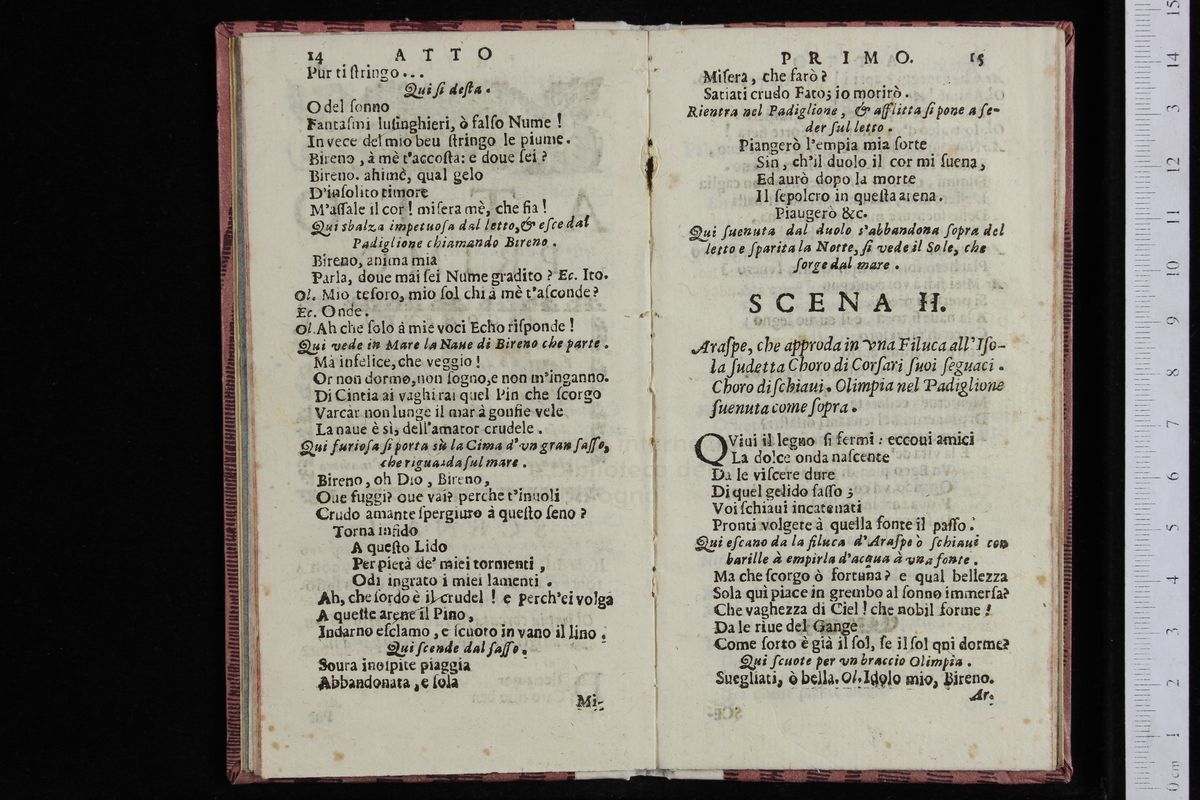 14 ATTO
Pur ti ſtringo...
Qui ſi deſta.
O del ſonno
Fantaſmi luſinghieri, ò falſo Nume!
In vece del mio beu ſtringo le piume.
Bireno, à mè t'accoſta: e doue ſei?
Bireno. ahimè, qual gelo
D'inſolito timore
M'aſſale il cor! miſera mè, che fia!
Qui sbalza impetuoſa dal letto, & eſce dal
Padiglione chiamando Bireno.
Bireno, anima mia
Parla, doue mai ſei Nume gradito? Ec. Ito.
Ol. Mio teſoro, mio ſol chi à mè t'aſconde?
Ec. Onde.
Ol. Ah che ſolo à mie voci Echo riſponde!
Qui vede in Mare la Naue di Bireno che parte.
Ma infelice, che veggio!
Or non dormo, non ſogno, e non m'inganno.
Di Cintia ai vaghi rai quel Pin che ſcorgo
Varcar non lunge il mar à gonfie vele
La naue è sì, dell'amator crudele.
Qui furioſa ſi porta sù la Cima d'vn gran ſaſſo,
che riguarda ſul mare.
Bireno, oh Dio, Bireno,
Oue fuggi? oue vai? perche t'inuoli
Crudo amante ſpergiuro à queſto ſeno?
Torna infido
A queſto Lido
Per pietà de' miei tormenti,
Odi ingrato i miei lamenti.
Ah, che ſordo è il crudel! e perch'ei volga
A queſte arene il Pino,
Indarno eſclamo, e ſcuoto in vano il lino.
Qui ſcende dal ſaſſo.
Soura inoſpite piaggia
Abbandonata, e ſola
Mi-
PRIMO. 15
Miſera, che farò?
Satiati crudo Fato; io morirò.
Rientra nel Padiglione, & afflitta ſi pone a ſe-
der ſul letto.
Piangerò l'empia mia ſorte
Sin, ch'il duolo il cor mi ſuena,
Ed aurò dopo la morte
Il ſepolcro in queſta arena.
Piaugerò &c.
Qui ſuenuta dal duolo s'abbandona ſopra del
letto e ſparita la Notte, ſi vede il Sole, che
ſorge dal mare.
SCENA II.
Araſpe, che approda in vna Filuca all'Iſo-
la ſudetta Choro di Corſari ſuoi ſeguaci.
Choro di ſchiaui. Olimpia nel Padiglione
ſuenuta come ſopra.
QViui il legno ſi fermi: eccoui amici
La dolce onda naſcente
Da le viſcere dure
Di quel gelido ſaſſo;
Voi ſchiaui incatenati
Pronti volgete à quella fonte il paſſo.
Qui eſcano da la filuca d'Araſpe ò ſchiaui con
barille à empirla d'acqua à vna fonte.
Ma che ſcorgo ò fortuna? e qual bellezza
Sola quì piace in grembo al ſonno immerſa?
Che vaghezza di Ciel! che nobil forme!
Da le riue del Gange
Come ſorto è già il ſol, ſe il ſol qni dorme?
Qui ſcuote per vn braccio Olimpia.
Suegliati, ò bella. Ol. Idolo mio, Bireno.
Ar.